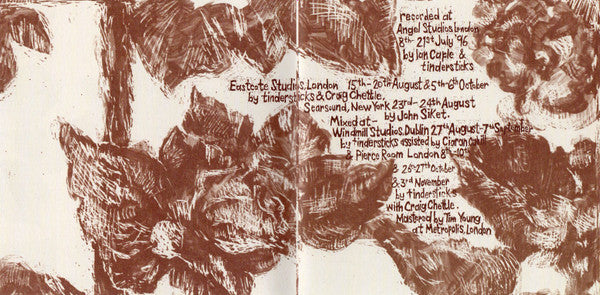 recorded at
Angel Studios, London
8th - 21st July '96
by Ian Caple &
tindersticks
Eastcote Studios, London 15th - 20th August & 5th - 6th October
by tindersticks & Craig Chettle.
Searsound, New York 23rd - 24th August
by John Siket.
Mixed at -
Windmill Studios, Dublin 27th August - 7th September
by tindersticks assisted by Ciaran
& Pierce Room London 8th -
& 25th 27th October
& 3rd November
by tindersticks
with Craig Chettle.
Mastered by Tim Young
at Metropolis, London